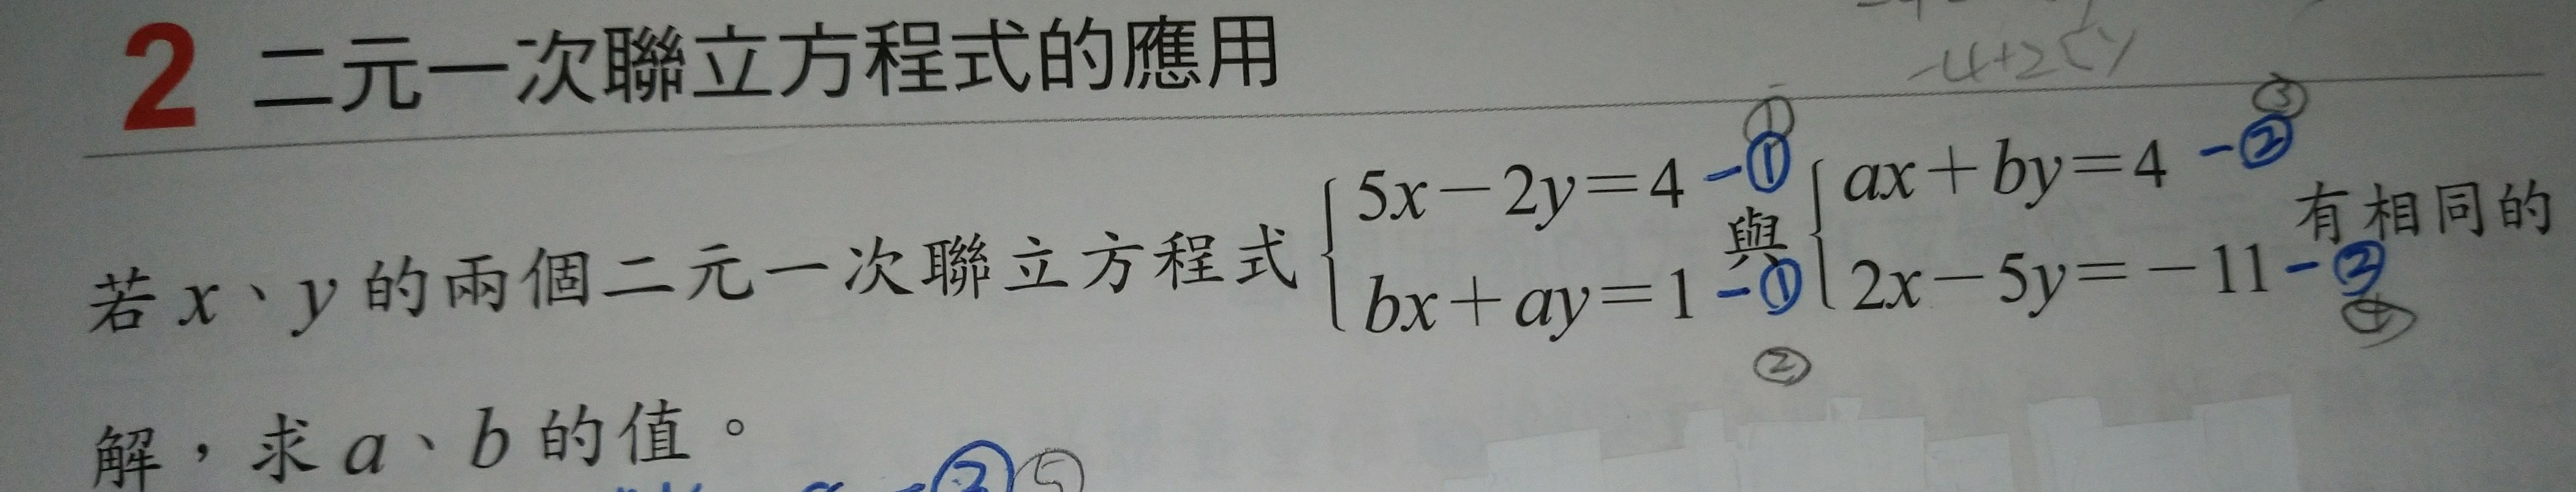 -4+25y
2 二元一次聯立方程式的應用
若 x、y 的兩個二元一次聯立方程式 { 5x－2y＝4 -① ① bx＋ay＝1 -① ② 與 { ax＋by＝4 -② ③ 2x－5y＝－11 -② ④ 有相同的
解，求 a、b 的值。
② ⑤